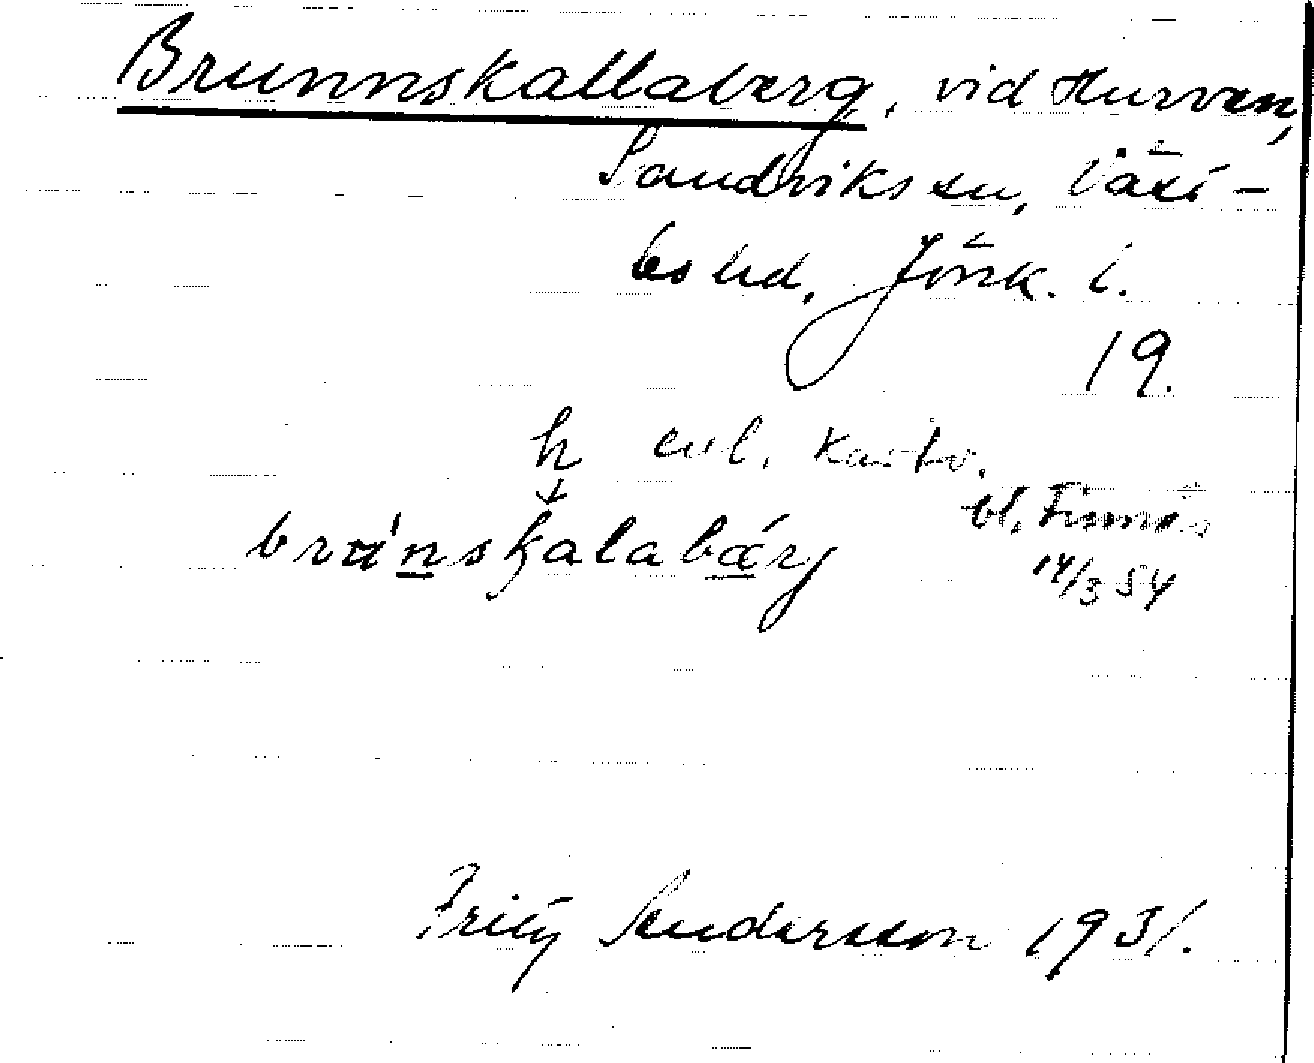 Brunnskallaberg, vid Hurven,
Sandviks sn, Väst-
bo hd, Jönk. l.
19.
h enl. kartv.
bl. Finnås
brúnskalabǽrg
14/3 54
Fritz Andersson 1931.